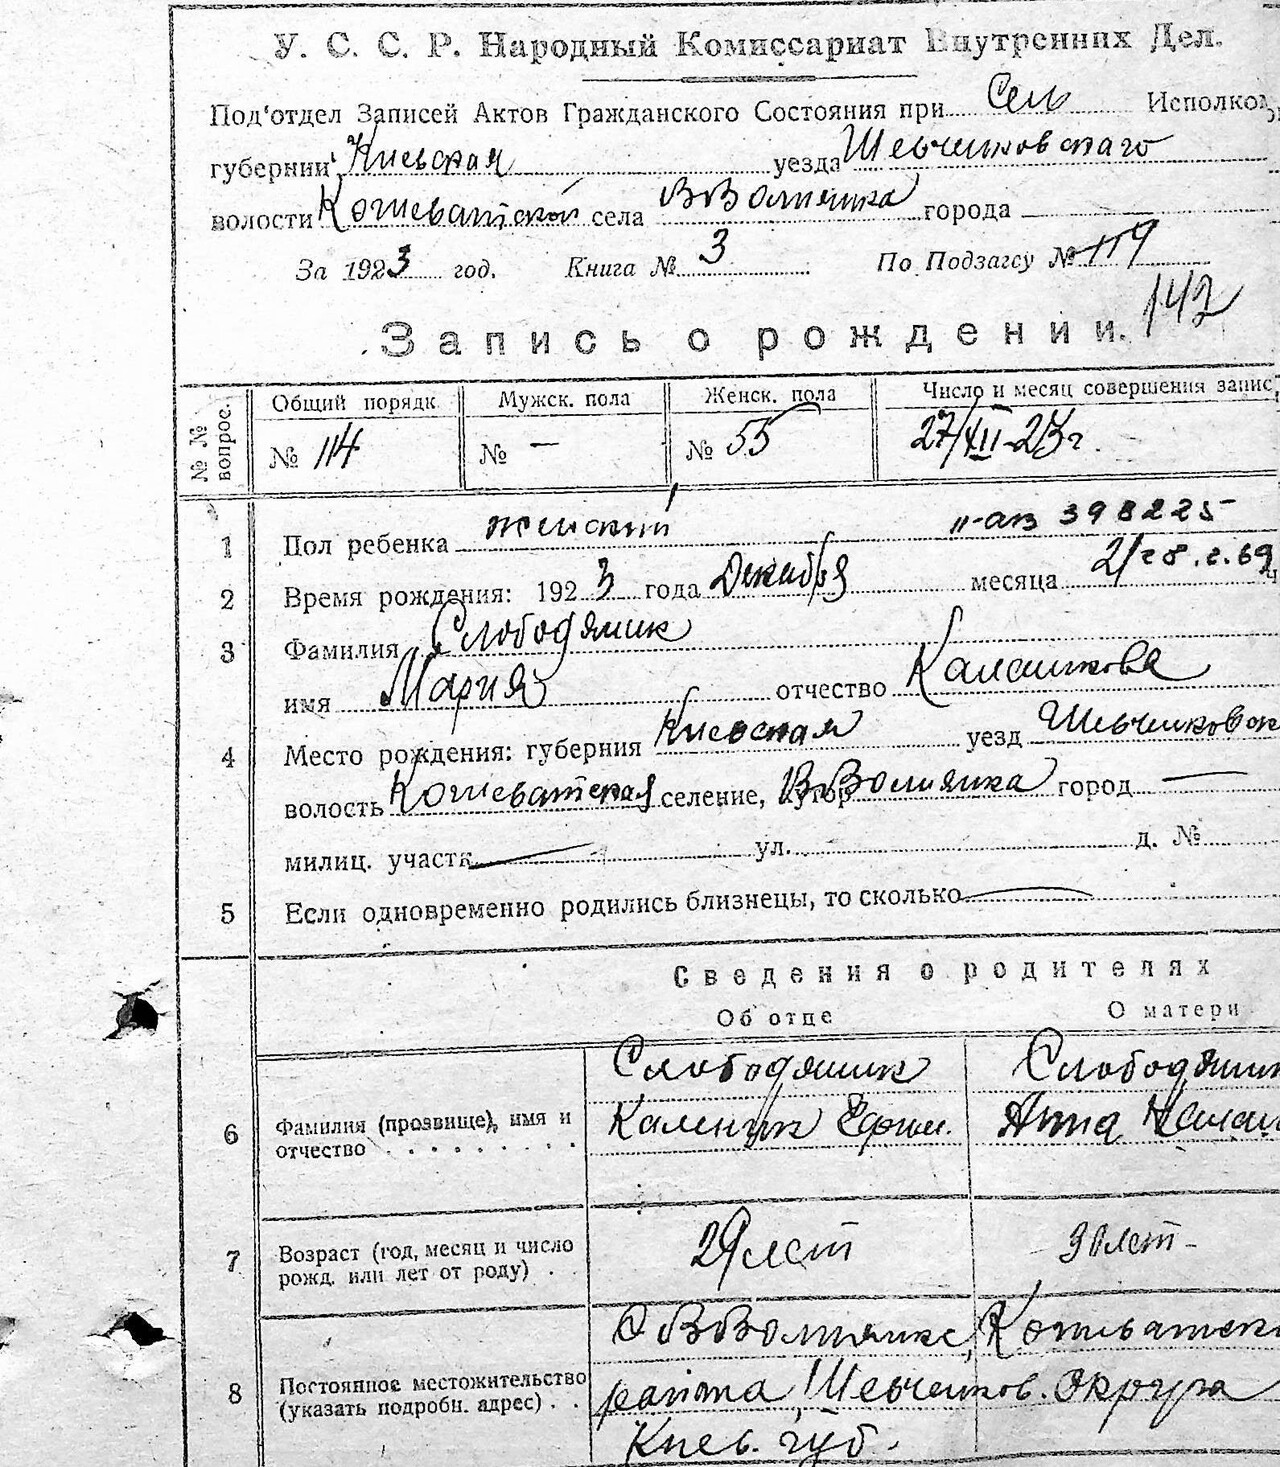 У. С. С. Р. Народный Комиссариат Внутренних Дел.
Под'отдел Записей Актов Гражданского Состояния при Сель Исполком
губернии Киевская уезда Шевченковского
волости Кошеватской села ВВолнянка города
За 1923 год. Книга № 3 По Подзагсу № 119
142
Запись о рождении.
№ № вопрос. Общий порядк. Мужск. пола Женск. пола Число и месяц совершения запис
№ 114 № — № 55 27/XII-23 г.
1 Пол ребенка женский II-АЗ 398225
2 Время рождения: 1923 года Декабря месяца 2/
3 Фамилия Слободяник
имя Мария отчество
4 Место рождения: губерния Киевская уезд Шевченковск
волость Кошеватская селение, хутор ВВолнянка город —
милиц. участк. — ул. д. №
5 Если одновременно родились близнецы, то сколько —
Сведения о родителях
Об отце О матери
6 Фамилия (прозвище), имя и отчество Слободяник Каленик Ефим. Слободяник Анна
7 Возраст (год, месяц и число рожд. или лет от роду) 29 лет 30 лет
8 Постоянное местожительство (указать подробн. адрес) С ВВолнянке, Кошеватско
района Шевченков. Округа
Киев. губ.